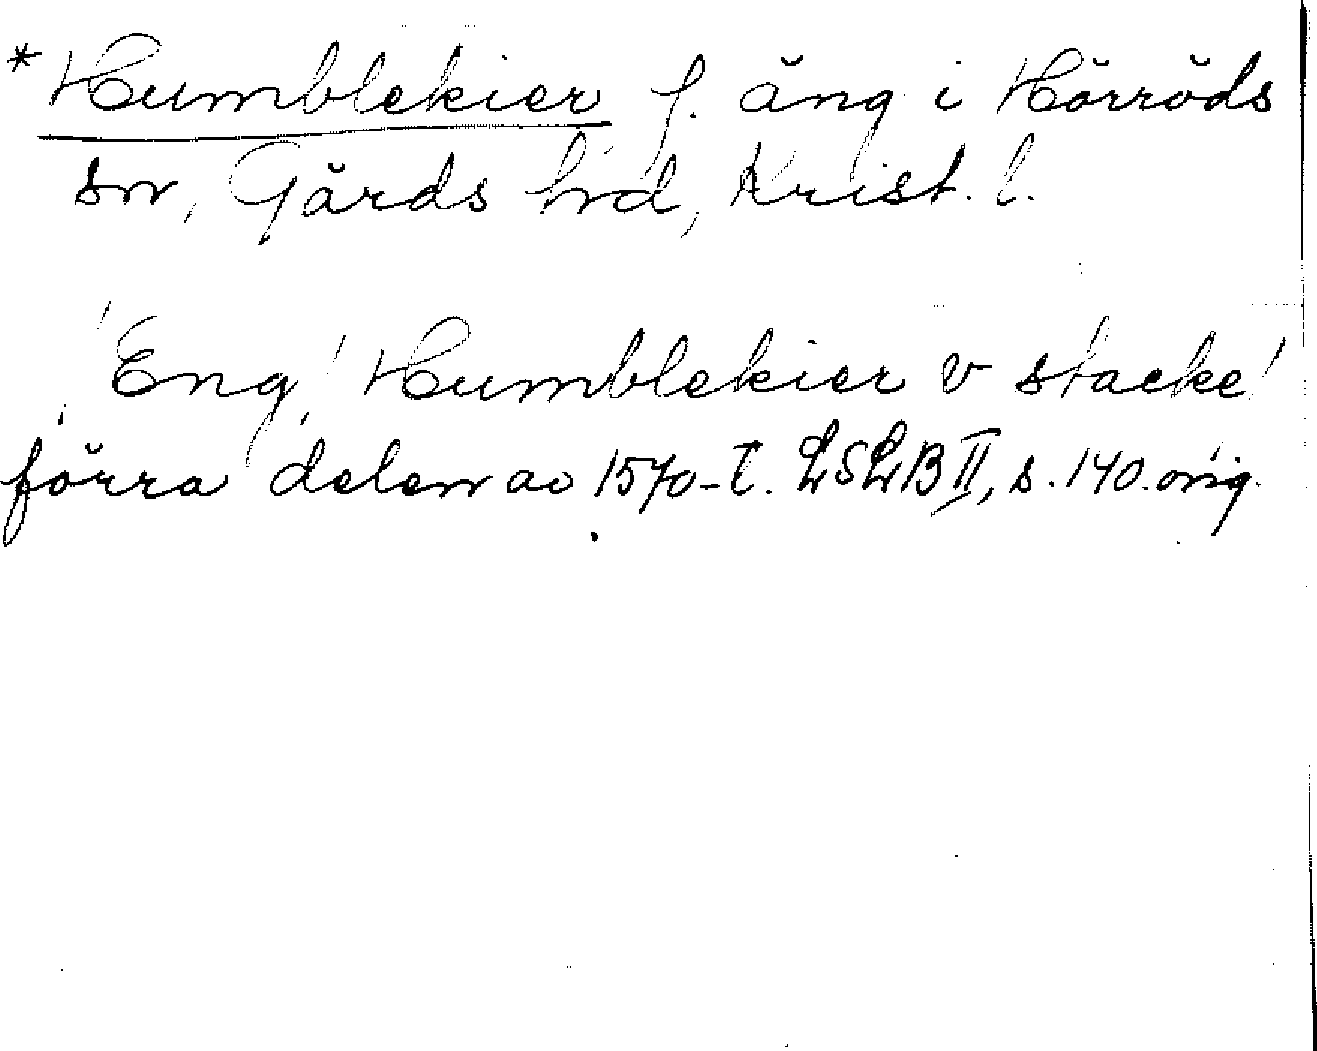 *Humblekier f. äng i Hörröds
sn, Gärds hd, Krist. l.
'Eng' 'Humblekier v stacke'
förra delen av 1570-t. LSLB II, s. 140. orig.